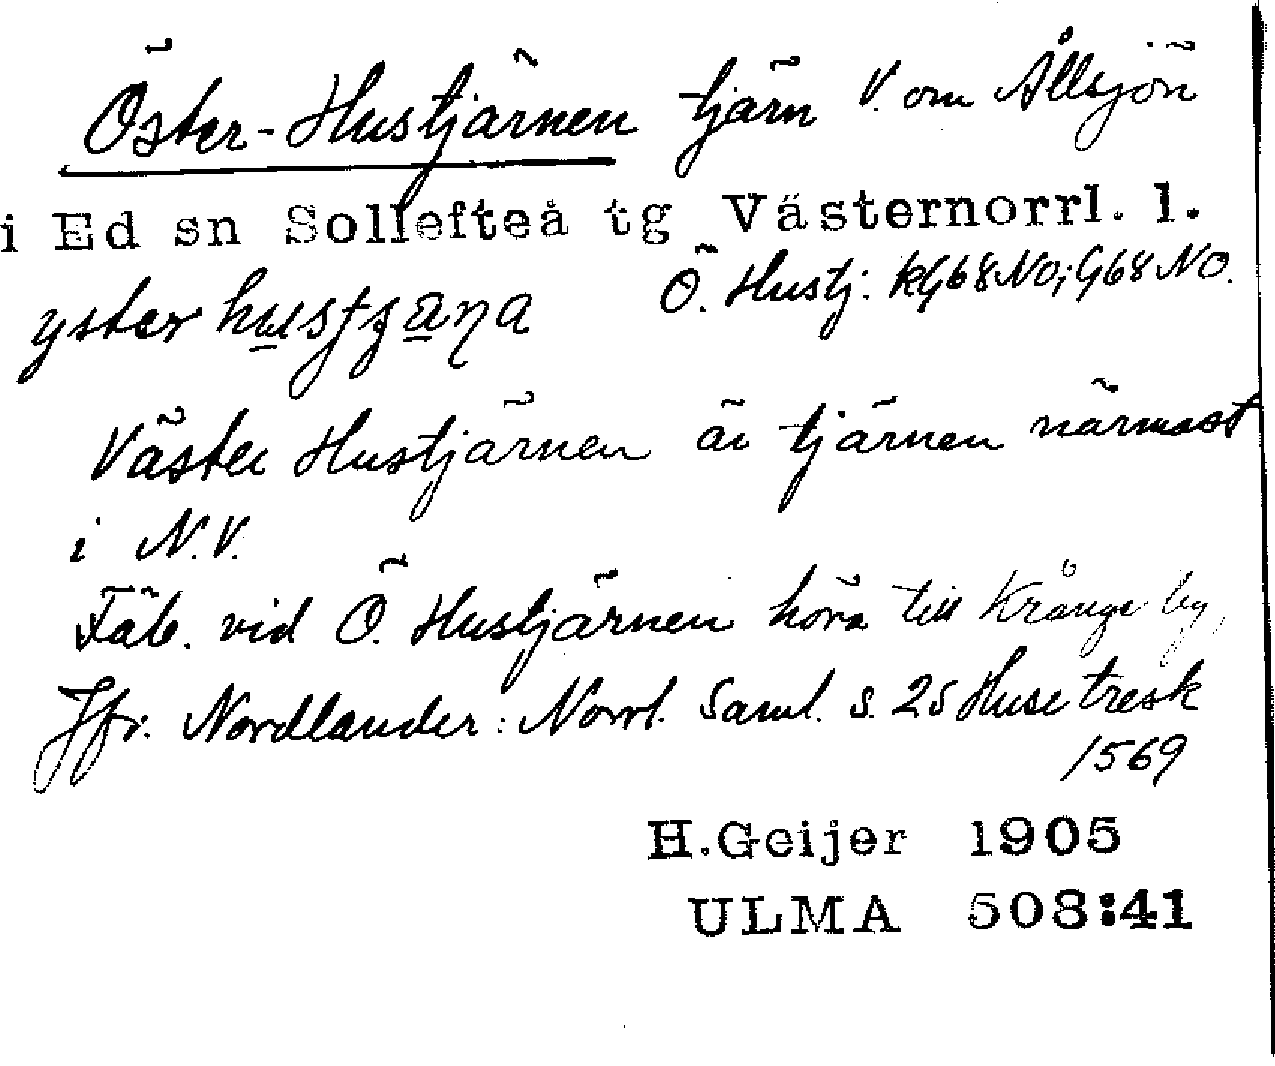 Öster-Hustjärnen tjärn V. om Ållsjön
i Ed sn Sollefteå tg Västernorrl. l.
Ö. Hustj: kg68NO; G68NO.
yster
Väster Hustjärnen är tjärnen närmast
i N.V.
Fäb. vid Ö. Hustjärnen höra till Krånge by,
Jfr. Nordlander: Norrl. Saml. s. 25 Huse tresk
1569
H.Geijer 1905
ULMA 508:41